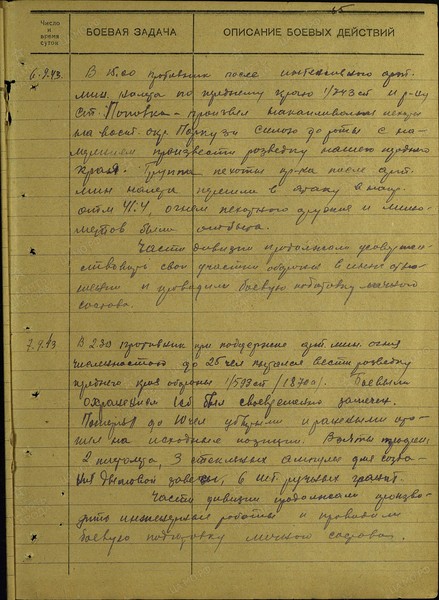 55
Число и время суток
БОЕВАЯ ЗАДАЧА
ОПИСАНИЕ БОЕВЫХ ДЕЙСТВИЙ
6.9.43
В 15.00 противник после интенсивного арт.
мин. налета по переднему краю 1/743 сп и р-ну
ст. Поповка - произвел накапливание пехоты
на вост. окр. силою до роты с на-
мерением произвести разведку нашего переднего
края. Группа пехоты пр-ка после арт.
мин налета перешли в атаку в напр.
отм 41.4, огнем пехотного оружия и мино-
метов была отбита.
Части дивизии продолжали усовершен-
ствовать свои участки обороны в инж. отно-
шении и проводили боевую подготовку личного
состава.
7.9.43
В 2.30 противник при поддержке арт. мин. огня
численностью до 25 чел пытался вести разведку
переднего края обороны 1/593 сп /1870а/. Боевым
охранением был своевременно замечен.
Потеряв до 10 чел убитыми и ранеными ото-
шел на исходные позиции. Взяты трофеи:
2 пистолета, 3 стеклянных ампулы для созда-
ния дымовой завесы, 6 шт. ручных гранат.
Части дивизии продолжали произво-
дить инженерные работы и проводили
боевую подготовку личного состава.